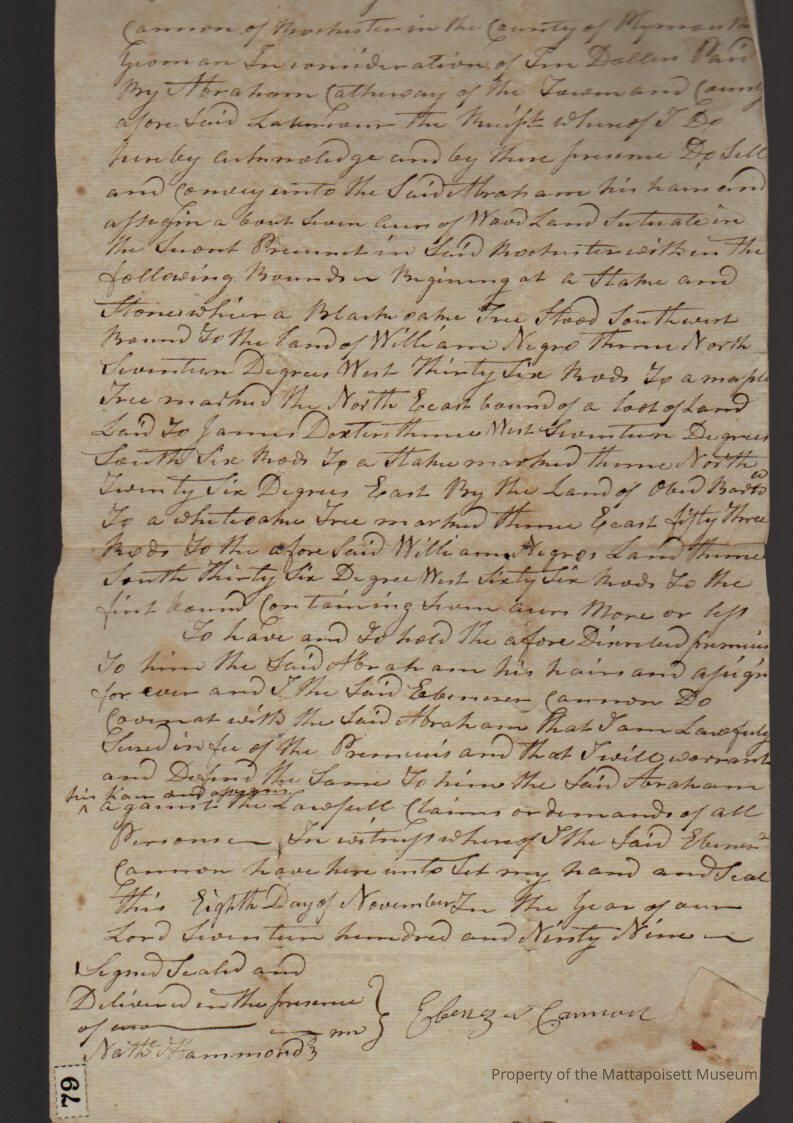 Cannon of Rochester in the County of Plymouth
Yeoman In consideration of Ten Dollers Paid
By Abraham Catheway of the Town and County
afore Said Labourer the Receipt whereof I Do
hereby acknowledge and by these presence Do Sell
and Convey unto the Said Abraham his hairs and
assigin a bout Seven acurs of Wood Land Situate in
the Second Precinct in Said Rochester with in the
following Bounds Begining at a Stake and
Stone whier a Black oake Tree Stood Southwest
Bound To the Land of William Negro thence North
Seventeen Degrees West Thirty Six Rods To a maple
Tree marked the North Eeast bound of a loot of Land
Laid To James Dexters thence West Seventeen Degrees
South Six Rods To a Stake marked thence North
Twenty Six Degrees East By the Land of Obed
To a white oake Tree marked thence Eeast fifty three
Rods To the afore Said William Negros Land thence
South Thirty Six Degree West Sixty Six Rods To the
first bound Containing Seven acurs More or less
To have and To hold the afore Discribed premies
To him the Said Abraham his hairs and asign
for ever and I the Said Ebenezer Cannon Do
Covenat with the Said Abraham That I am Lawfuly
Seized in fee of the Premeies and that I will warrant
and Defend the Same To him the Said Abraham
his hairs and assigns
^ against the Lawfull Claims or demands of all
Persons In witness where of I the Said Ebenezr
Cannon have here unto Set my hand and Seal
this Eighth Day of November In the Year of our
Lord Seventeen hundred and Ninty Nine
Signed Sealed and
Delivered in the presence
of us
Ebenezer Cannon
Nathl Hammond
79
Property of the Mattapoisett Museum